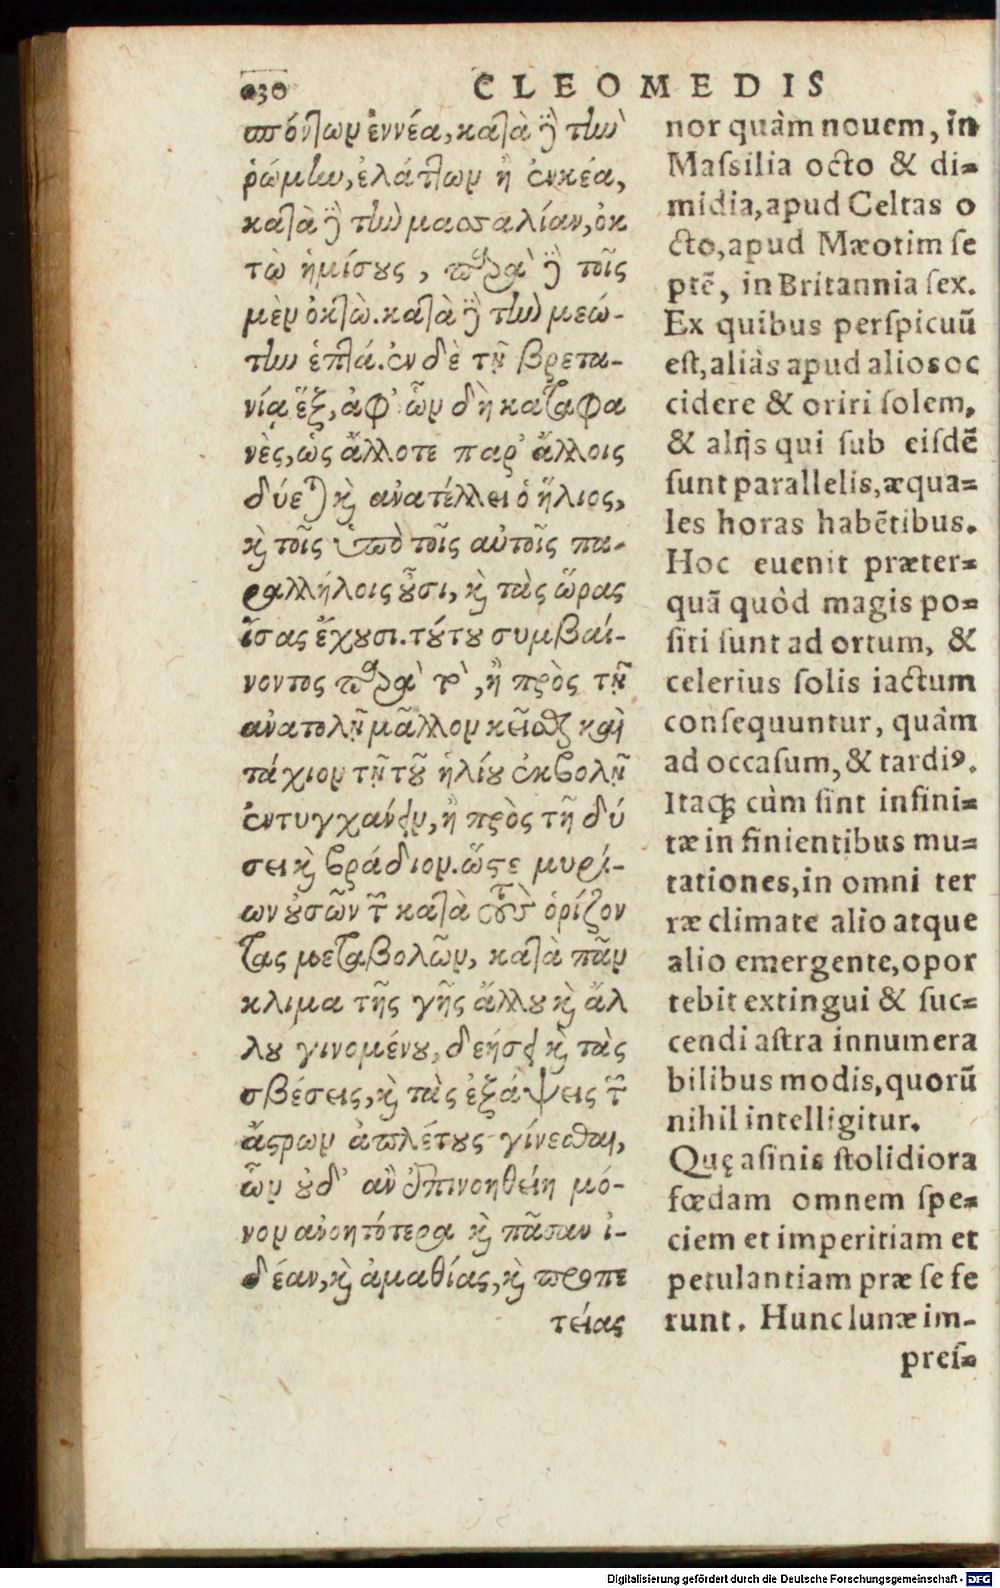 230 CLEOMEDIS
πόντων ἐννέα, κατὰ δὲ τὴν
ῥώμην, ἐλάττων ἢ ἐννέα,
κατὰ δὲ τὴν μασσαλίαν, ὀκ
τὼ ἡμίσους, παρὰ δὲ τοῖς
μὲν ὀκτὼ. κατὰ δὲ τὴν μεώ-
τιν ἑπτά. ἐν δὲ τῇ βρετα-
νίᾳ ἕξ, ἀφ' ὧν δὴ καταφα
νὲς, ὡς ἄλλοτε παρ' ἄλλοις
δύεται καὶ ἀνατέλλει ὁ ἥλιος,
καὶ τοῖς ὑπὸ τοῖς αὐτοῖς πα-
ραλλήλοις οὖσι, καὶ τὰς ὥρας
ἴσας ἔχουσι. τούτου συμβαί-
νοντος παρὰ τὸ, ἢ πρὸς τῇ
ἀνατολῇ μᾶλλον κεῖσθαι καὶ
τάχιον τῇ τοῦ ἡλίου ἐκβολῇ
ἐντυγχάνειν, ἢ πρὸς τῇ δύ
σει καὶ βράδιον. ὥστε μυρί-
ων οὐσῶν τῶν κατὰ τοὺς ὁρίζον
τας μεταβολῶν, κατὰ πᾶν
κλιμα τῆς γῆς ἄλλου καὶ ἄλ
λου γινομένου, δεήσει καὶ τὰς
σβέσεις, καὶ τὰς ἐξάψεις τῶν
ἄστρων ἀπλέτους γίνεσθαι,
ὧν οὐδ' ἂν ἐπινοηθείη μό-
νον ἀνοητότερα καὶ πᾶσαν ἰ-
δέαν, καὶ ἀμαθίας, καὶ προπε
τείας
nor quàm nouem, in
Maſsilia octo & di=
midia, apud Celtas o
cto, apud Mæotim ſe
ptẽ, in Britannia ſex.
Ex quibus perſpicuũ
eſt, aliàs apud alios oc
cidere & oriri ſolem,
& alijs qui ſub eiſdẽ
ſunt parallelis, æqua=
les horas habẽtibus.
Hoc euenit præter=
quã quòd magis po=
ſiti ſunt ad ortum, &
celerius ſolis iactum
conſequuntur, quàm
ad occaſum, & tardiꝰ.
Itaqꝫ cùm ſint infini=
tæ in finientibus mu=
tationes, in omni ter
ræ climate alio atque
alio emergente, opor
tebit extingui & ſuc=
cendi aſtra innumera
bilibus modis, quorũ
nihil intelligitur.
Quę aſinis ſtolidiora
fœdam omnem ſpe=
ciem et imperitiam et
petulantiam præ ſe fe
runt. Hunc lunæ im-
preſ=
Digitalisierung gefördert durch die Deutsche Forschungsgemeinschaft - DFG